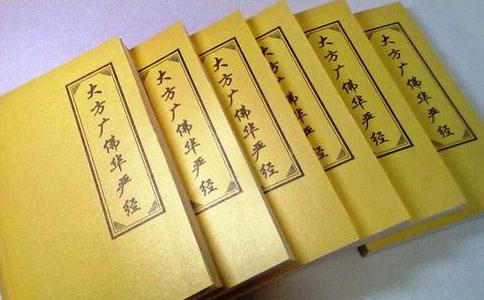 大方广佛华严经
大方广佛华严经
大方广佛华严经
大方广佛华严经
大方广佛华严经
大方广佛华严经